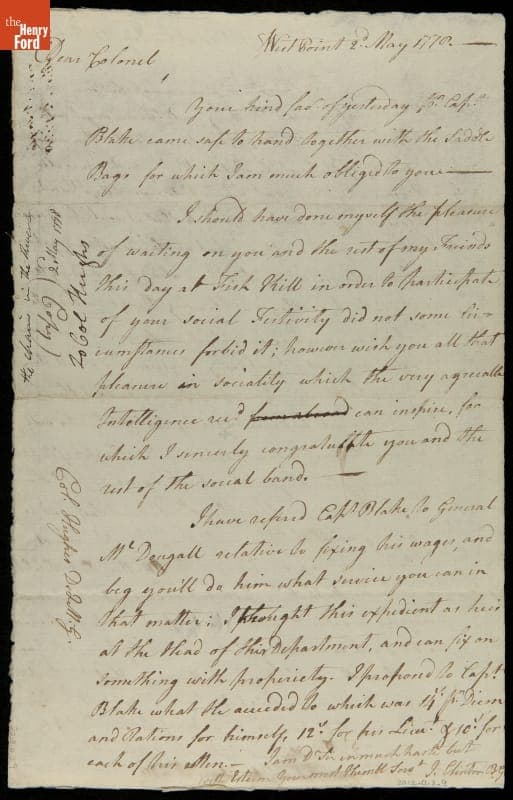 the
Henry
Ford
West Point 2d May 1778.
Dear Colonel,
Your kind favr of yesterday pr Capt
Blake came safe to hand together with the Saddle
Bags for which I am much obliged to you
I should have done myself the pleasure
of waiting on you and the rest of my Friends
this day at Fish Kill in order to participate
of your social Festivity did not some Cir-
cumstances forbid it; however wish you all that
pleasure in sociality which the very agreeable
Intelligence recd from abroad can inspire, for
which I sincerly congratulate you and the
rest of the social band.
I have refered Capt Blake to General
Mc Dougall relative to fixing his wages, and
beg you'll do him what service you can in
that matter; I thought this expedient as he is
at the Head of this Department, and can fix on
something with propriety. I proposed to Capt
Blake what he acceded to which was 14s pr Diem
and Rations for himself, 12s for his Lieut & 10s for
each of his Men. I am Dr Sir in much haste but
with Esteem Your most Humble Servt J. Clinton B G
the chain in the
2 May 1778
To Col Hughs
Col. Hughes D Q M G.
2012.0.3.9